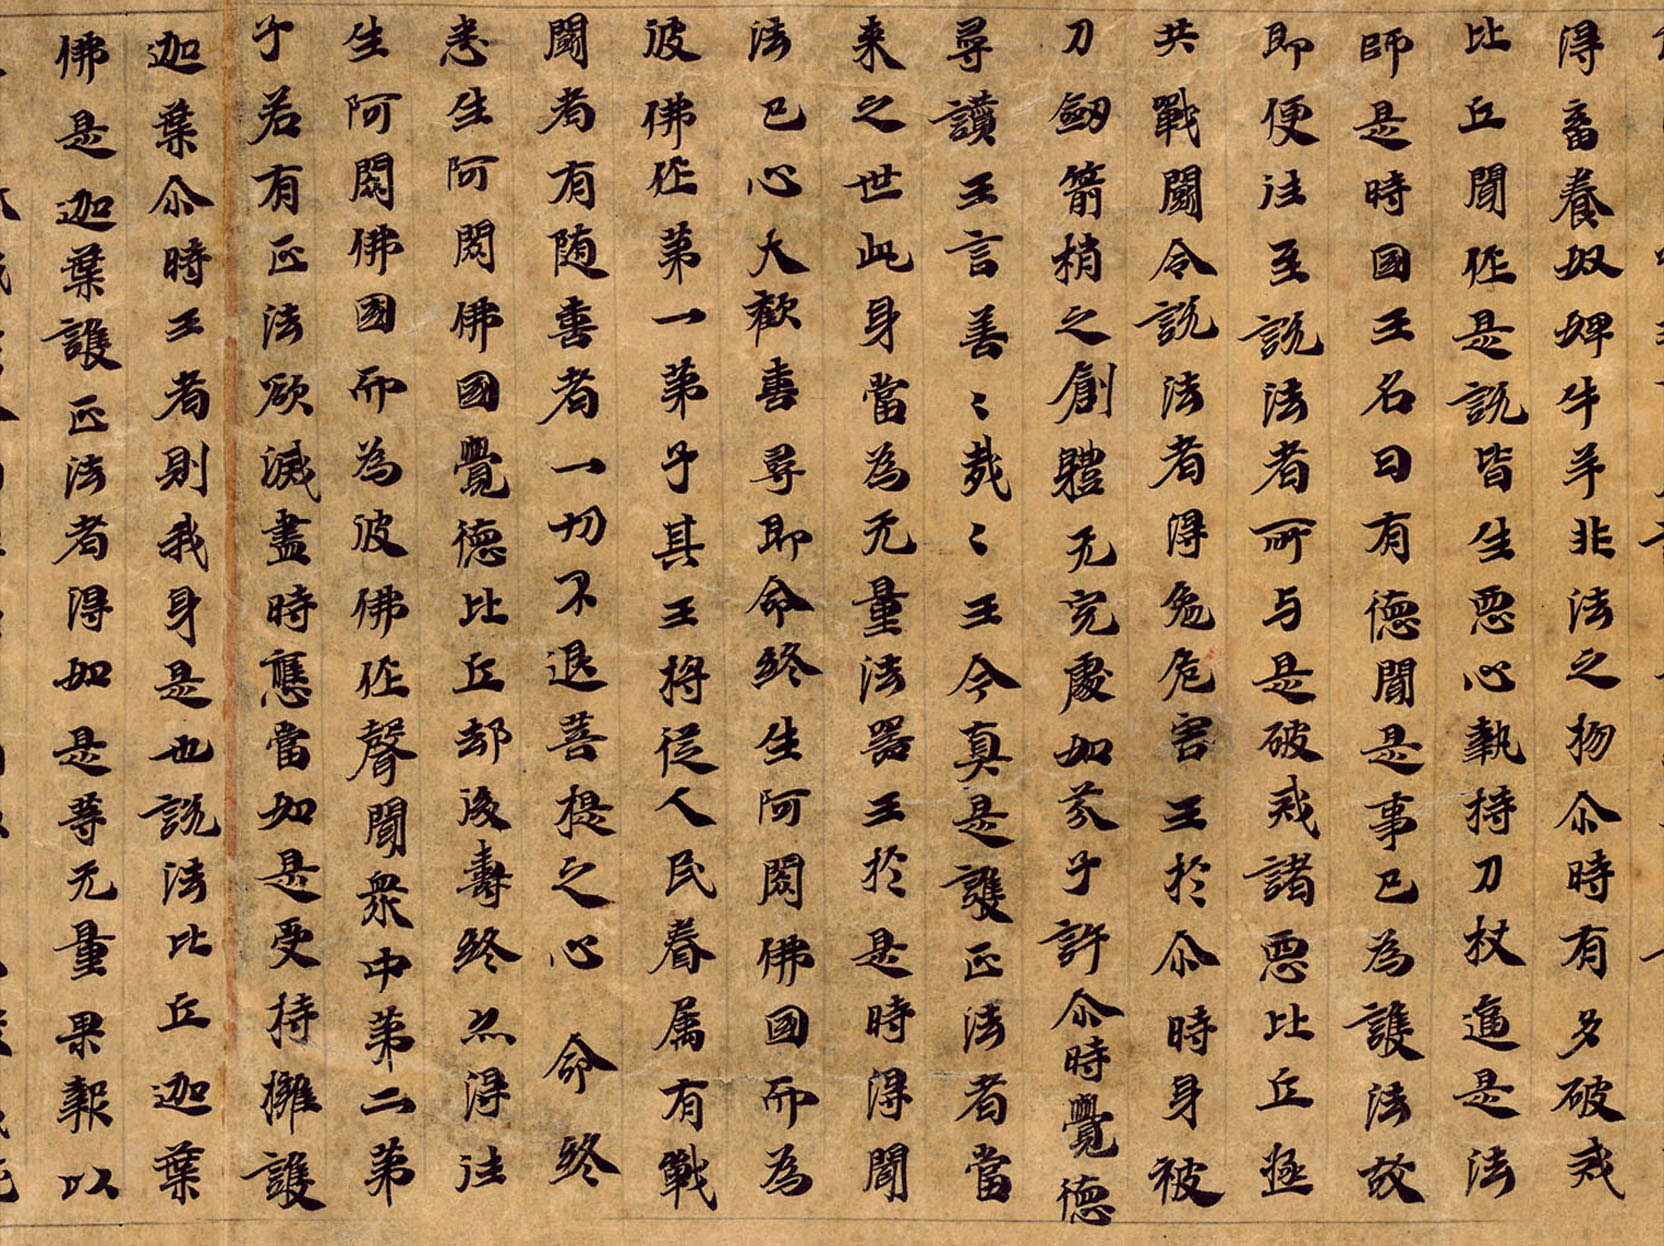 得畜養奴婢牛羊非法之物尒時有多破戒
比丘聞作是説皆生惡心執持刀杖逼是法
師是時國王名曰有德聞是事已為護法故
即便往至説法者所与是破戒諸惡比丘極
共戰鬪令説法者得免危害王於尒時身被
刀劔箭矟之創體无完處如芥子許尒時覺德
尋讃王言善〻哉〻王今真是護正法者當
来之世此身當為无量法器王於是時得聞
法已心大歡喜尋即命終生阿閦佛國而為
彼佛作第一弟子其王將従人民眷属有戰
鬪者有随喜者一切不退菩提之心命終
悉生阿閦佛國覺德比丘却後壽終亦得往
生阿閦佛國而為彼佛作聲聞衆中第二弟
子若有正法欲滅盡時應當如是受持擁護
迦葉尒時王者則我身是也説法比丘迦葉
佛是迦葉護正法者得如是等无量果報以